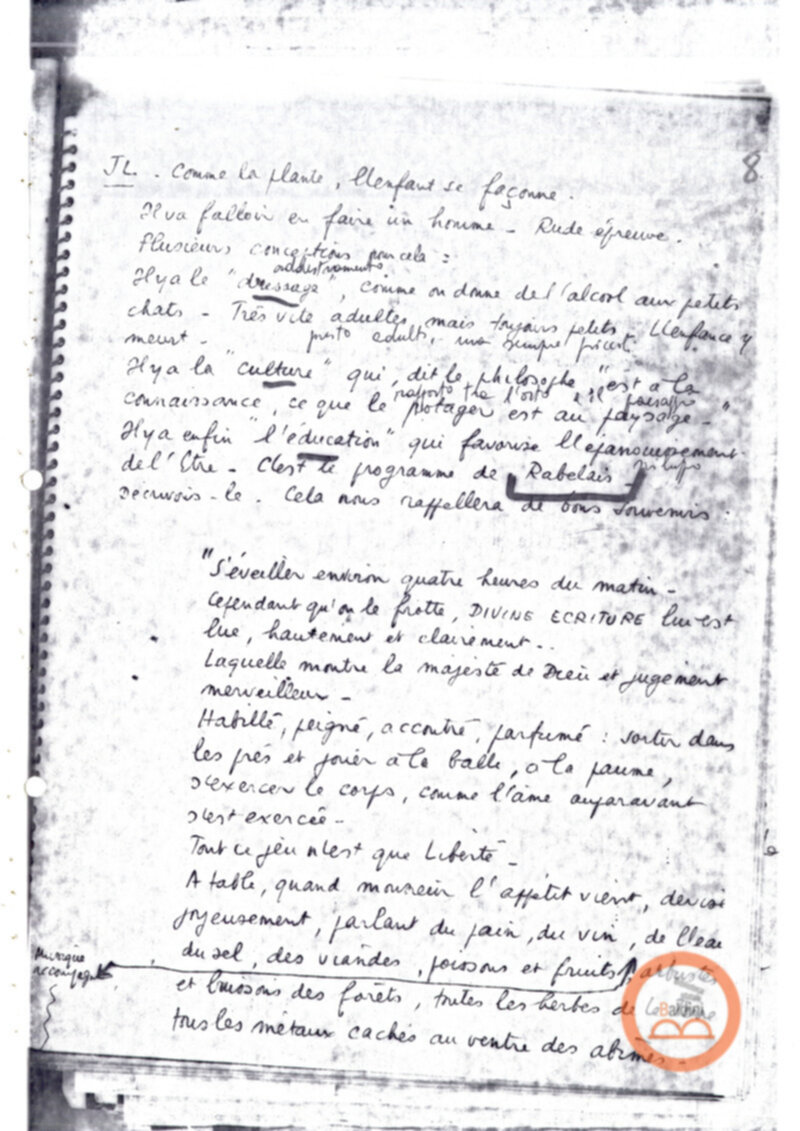 8
JL. Comme la plante, l'enfant se façonne.
Il va falloir en faire un homme - Rude épreuve.
Plusieurs conceptions pour cela :
addestramento
Il y a le "dressage", comme on donne de l'alcool aux petits
chats - Très vite adultes, mais toujours petits. L'enfance y
meurt - presto adulti, ma sempre
Il y a la "culture" qui, dit le philosophe "est à la
rapporto tra l'orto e il paesaggio
connaissance, ce que le potager est au paysage - "
Il y a enfin "l'éducation" qui favorise l'épanouissement
sviluppo
de l'Etre - C'est le programme de Rabelais -
Décrivois-le. Cela nous rappellera de bons souvenirs.
"S'éveiller environ quatre heures du matin -
Cependant qu'on le frotte, DIVINE ECRITURE lui est
lue, hautement et clairement..
Laquelle montre la majesté de Dieu et jugement
merveilleux -
Habillé, peigné, accoutré, parfumé : sortir dans
les prés et jouer à la balle, à la paume,
s'exercer le corps, comme l'âme auparavant
s'est exercée -
Tout ce jeu n'est que Liberté -
A table, quand monsieur l'appétit vient, deviser
joyeusement, parlant du pain, du vin, de l'eau
du sel, des viandes, poissons et fruits, arbustes
Musique
et buissons des forêts, toutes les herbes de la
tous les métaux cachés au ventre des abîmes -